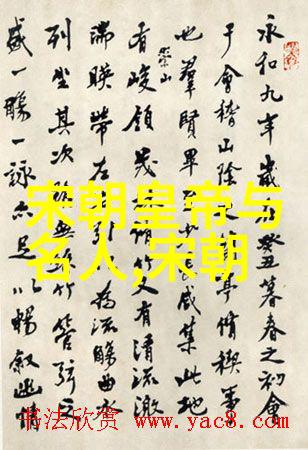 永和九年歲癸丑暮春之初會
于會稽山陰亭脩稧事
也羣賢畢咸集此地
有崇山峻領茂竹又有清流激
湍暎帶左引為流觴曲水
列坐其次無竹管弦之
盛一觴一詠亦足以暢叙幽情
宋朝皇帝与
名人,宋朝
书法欣赏 www.yac8.com